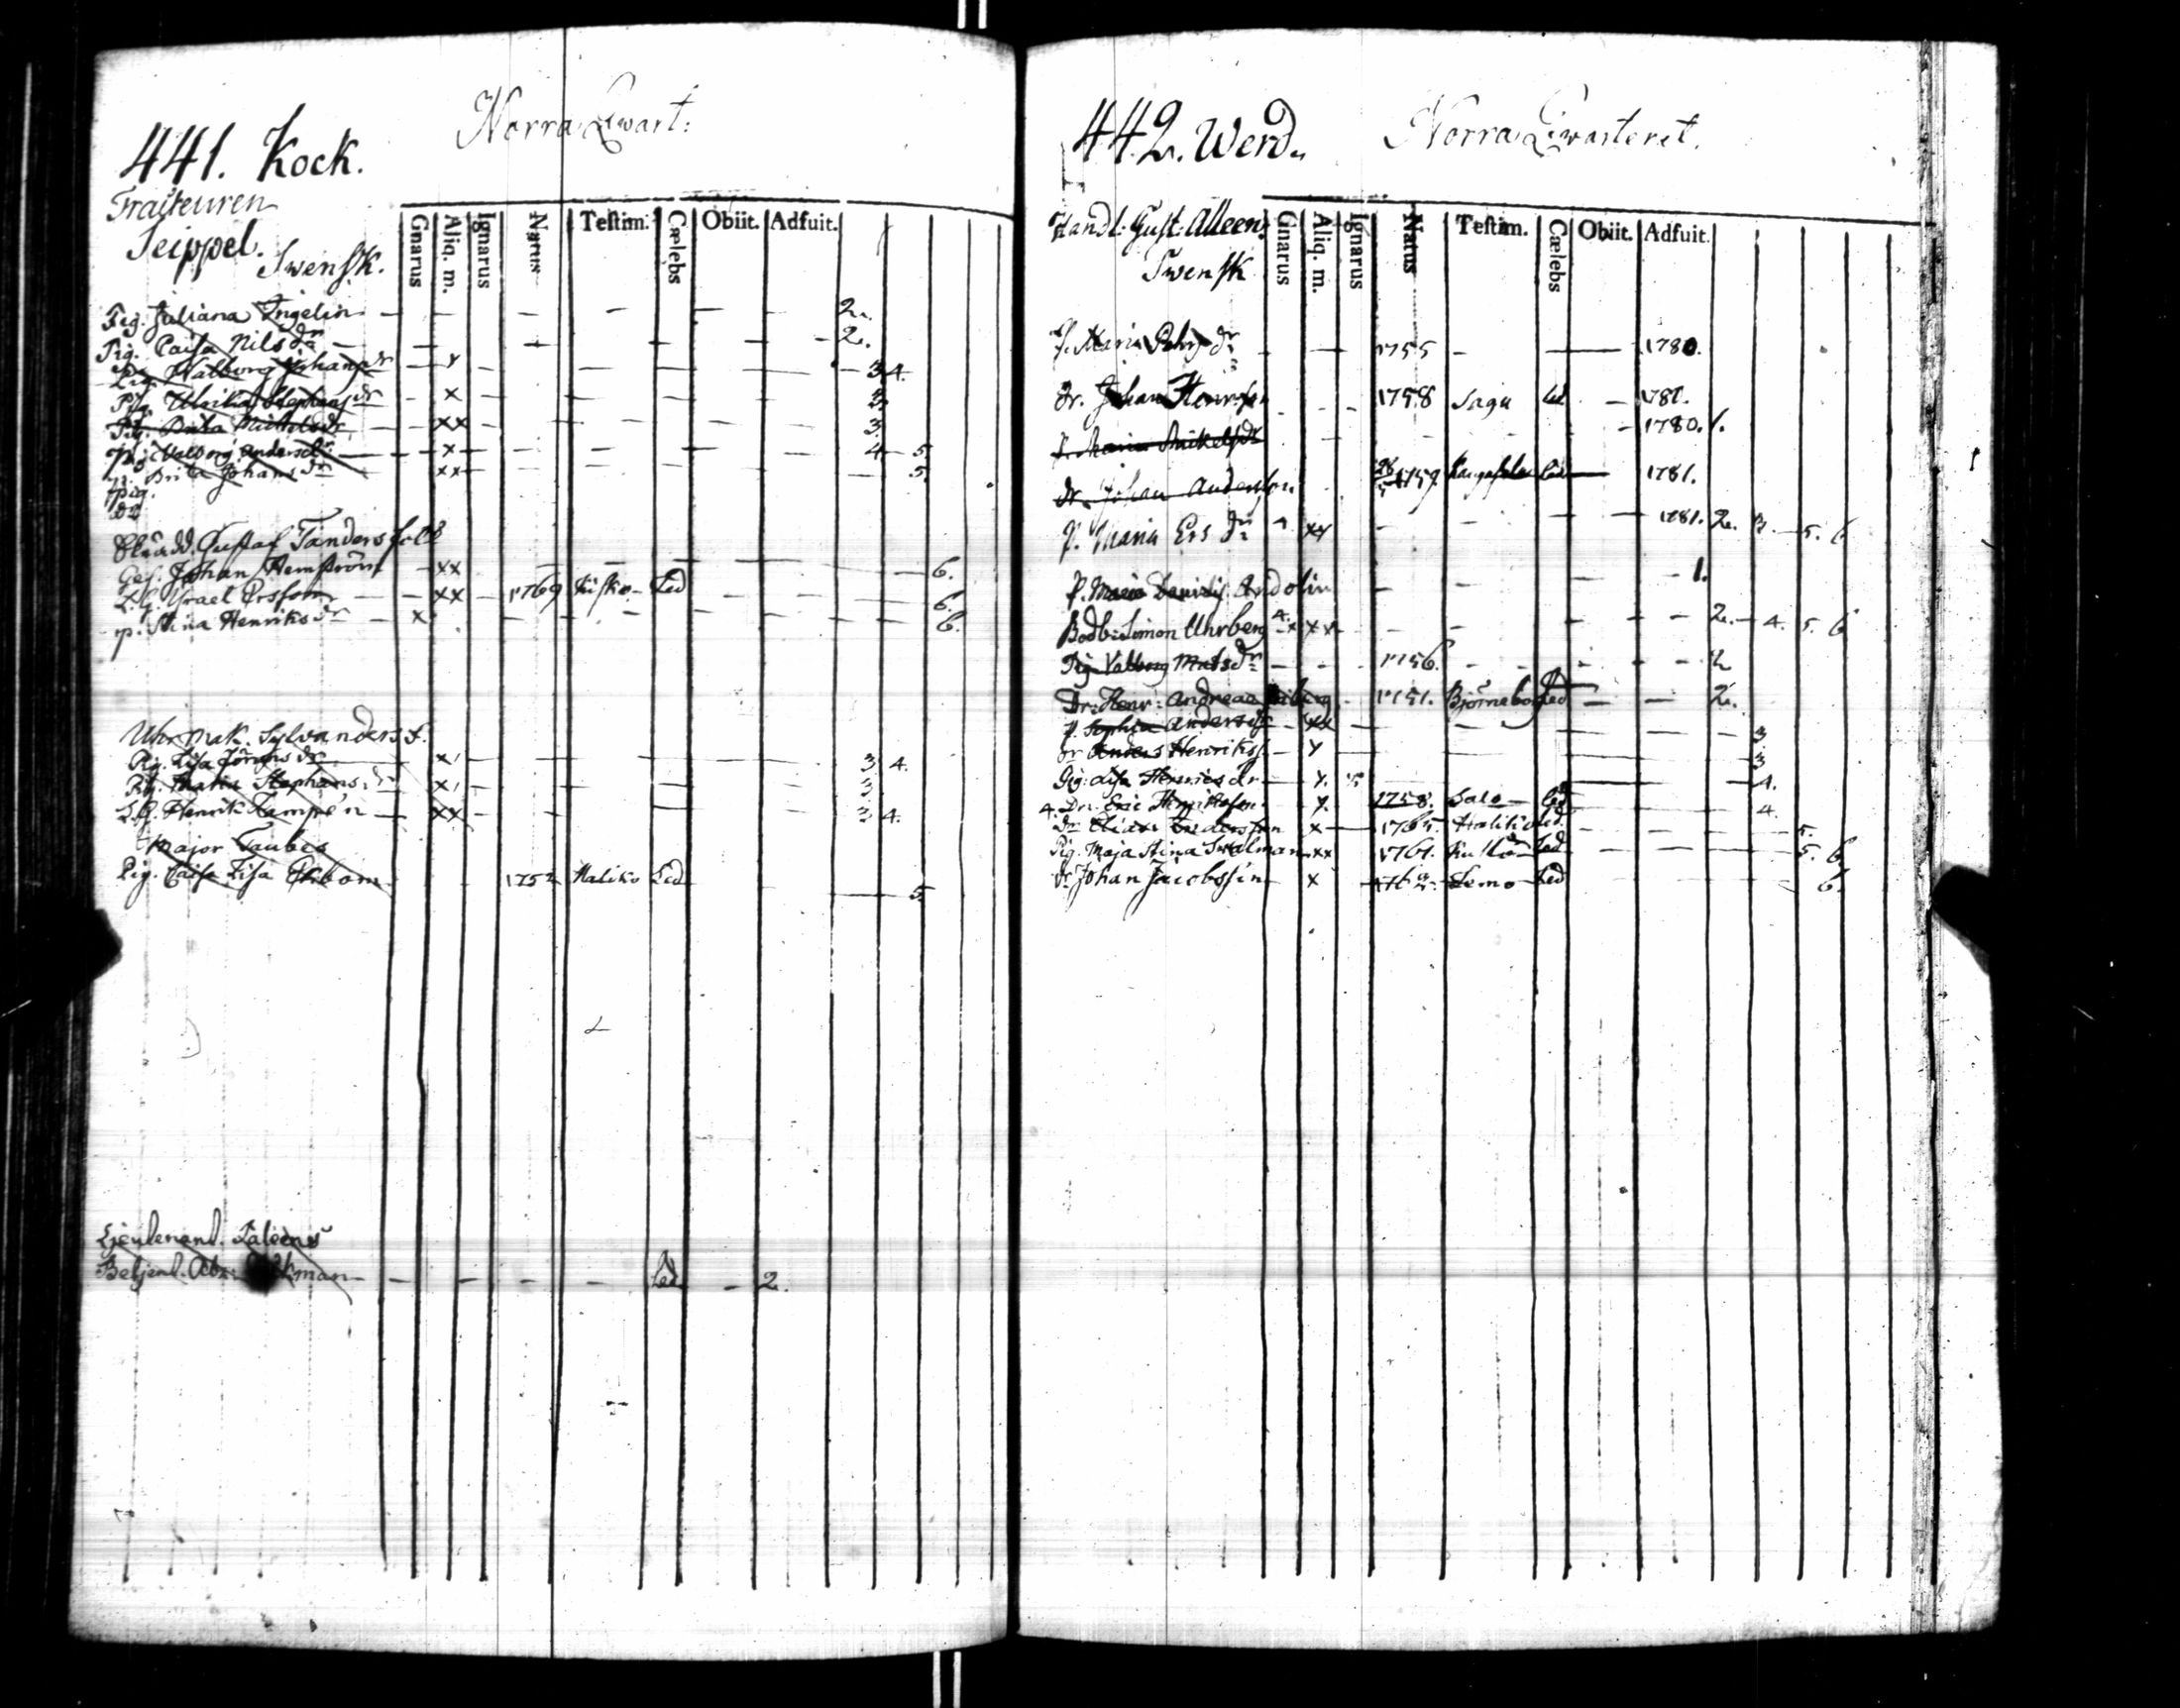 Norra Qwart:
441. Kock.
Traiteuren
Seippel.
Swensk.
Gnarus Aliq. m. Ignarus Natus Testim. Cælebs Obiit. Adfuit.
Pig. Juliana Ingelin - - - - - - 2.
Pig. Caisa Nils dr - - - - - - 2.
Pig. Valborg Johans dr - x - - - - - 3 4.
Pig. Ulrika Stephans dr - x - - - - 3.
Pig. Brita Mickels dr - xx - - - - 3.
Pig. Valborg Anders dr - x - - - - 4 - 5.
Pig. Brita Johans dr xx - - - - 5.
Skrädd. Gustaf Tanders folk
Ges. Johan Hemström - xx - - - - 6.
L.G. Israel Ersson - xx - 1769 Kisko - Led - - - 6.
p. Stina Henriks dr - x - - - - 6.
Uhrmak. Sylvanders f.
Pig. Lisa Jörans dr - x - - - - 3 4.
Pig. Maria Stephans dr - x - - - - 3
L.G. Henrik Kempe'n - xx - - - - 3 4.
Major Taubes
Pig. Caisa Lisa Ekbom 1752 Haliko Led 5.
Lieutenant
Betjent. - - - - Led - 2.
Norra Qwarteret.
442. Werd.
Handl: Gust: Alleen.
Swensk
Gnarus Aliq. m. Ignarus Natus Testim. Cælebs Obiit. Adfuit.
P. Maria dr - - 1755 - - 1780.
Dr. Johan Henrsson - - 1758 Sagu Led - 1781.
P. Maria Mickels dr - - - 1780. 1.
Dr. Johan Andersson 1759. Led - 1781.
P. Maria Ers dr xx - - - 1781. 2. 3. - 5. 6
P. Andolin - - - - 1.
Bodb: Simon Uhrberg x xx - - - - - 2. - 4. 5. 6
Pig. Valborg Mats dr - - 1756. - - - - - 2
Dr. Henr: Andreae 1751. Björneborg Led - - 2.
P. Sophia Anders dr - xx - - - 3
Dr Anders Henrikss. - x - - 3
Pig: Lisa Henrics dr - x. - 4.
4. Dr. Eric Henriksson x. 1758. Salo - Led 4.
Dr Elias Andersson x - 1765. Haliko Led. - - - 5.
Pig. Maja Stina Swalman xx 1761. Led - - - 5. 6.
Dr Johan Jacobsson x Lemo - Led - - 6.